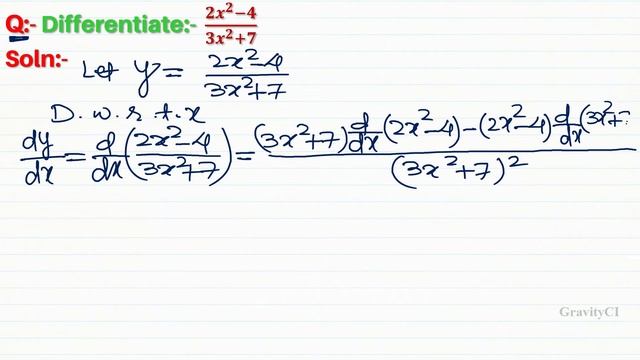 Q:- Differentiate:- 2x²-4 / 3x²+7
Soln:- Let y = 2x²-4 / 3x²+7
D. w. r. t. x
dy/dx = d/dx (2x²-4 / 3x²+7) = (3x²+7) d/dx (2x²-4) - (2x²-4) d/dx (3x²+7 / (3x²+7)²
GravityCI